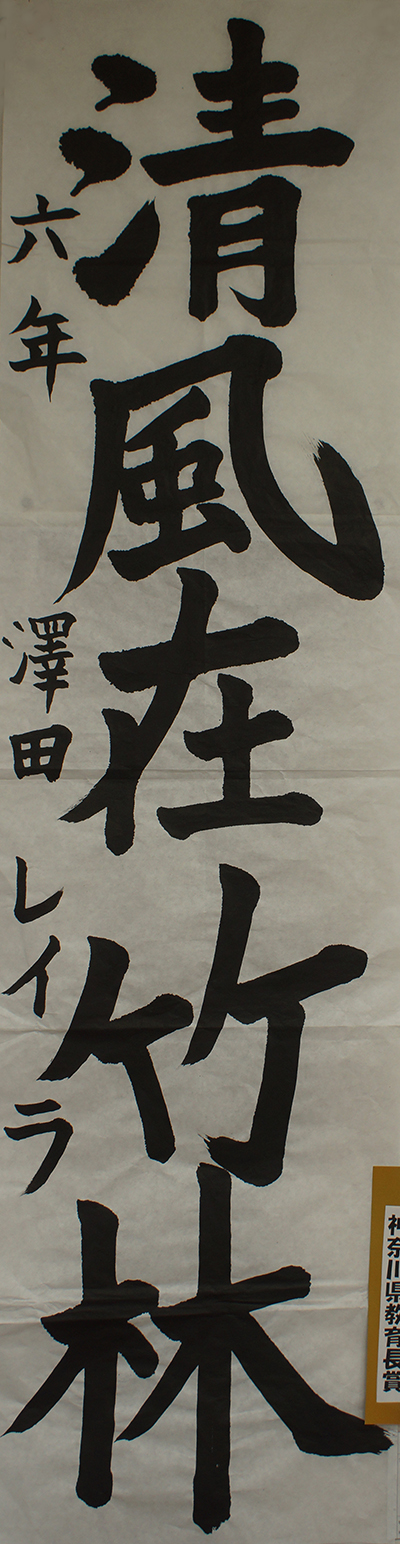 清風在竹林
六年 澤田レイラ
神奈川県教育長賞